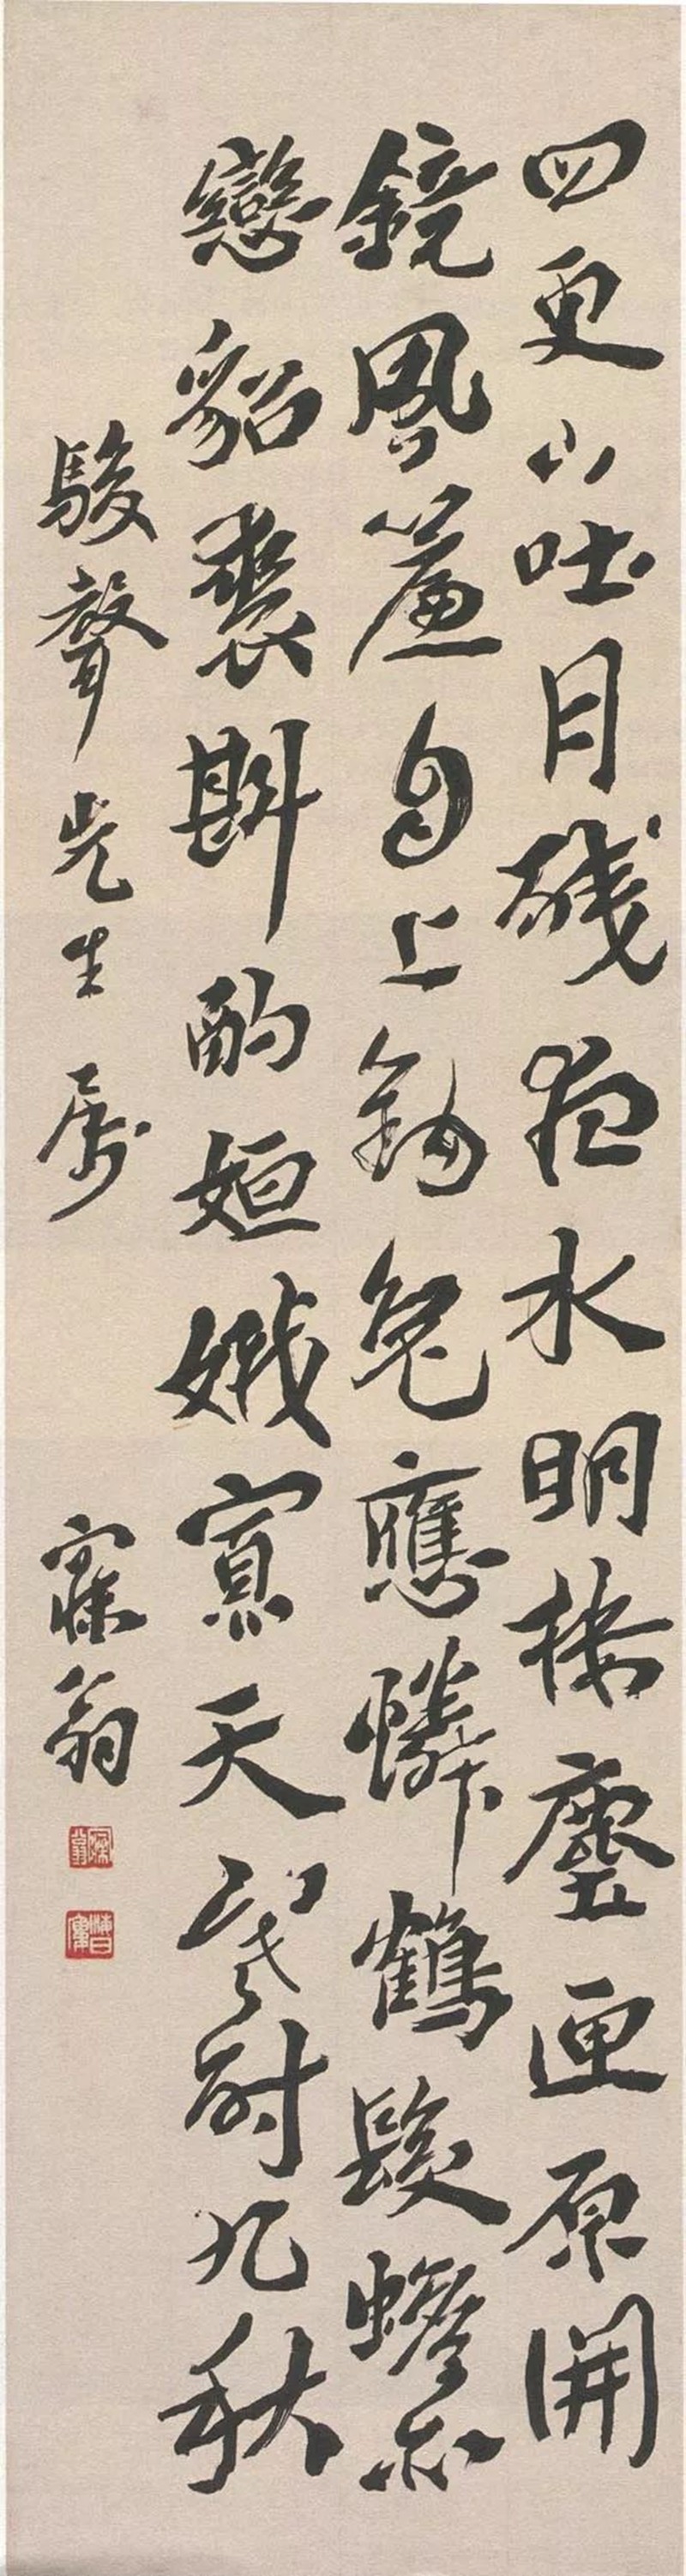 四更山吐月殘夜水明樓塵匣原開
鏡風簾自上鉤兔應憐鶴髮蟾亦
戀貂裘斟酌姮娥寡天寒耐九秋
駿聲先生屬
寐翁